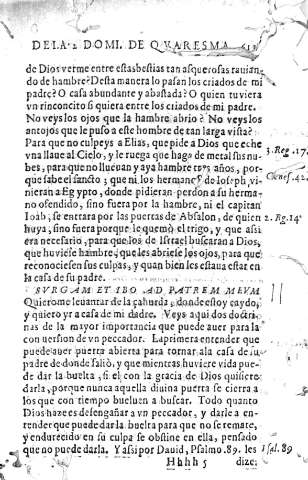 DE LA 2 DOMI. DE QVARESMA
de Dios verme entre estas bestias tan asquerosas rauian-
do de hambre? Desta manera lo pasan los criados de mi
padre? O casa abundante y abastada? O quien tuviera
vn rinconcito si quiera entre los criados de mi padre.
No veys los ojos que la hambre abrio? No veys los
antojos que le puso a este hombre de tan larga vista?
Para que no culpeys a Elias, que pide a Dios que eche
vna llaue al Cielo, y le ruega que haga de metal sus nu-
bes, para que no llueuan aya hambre tres años, por-
que sabe el sancto; que ni los hermanos de Ioseph, vi-
nieran a Egypto, donde pidieran perdon a su herma-
no ofendido, sino fuera por la hambre, ni el capitan
Ioab, se entrara por las puertas de Absalon, de quien
huya, sino fuera porque le quemò el trigo, y que assi
era necesario, para que los de Israel buscaran a Dios,
que huuiese hambre, que les abriese los ojos, para que
reconociesen sus culpas, y quan bien les estaua estar en
la casa de su padre.
SVRGAM ET IBO AD PATREM MEVM
Quierome leuantar de la çahurda donde estoy caydo,
y quiero yr a casa de mi padre. Veys aqui dos doctri-
nas de la mayor importancia que puede auer para la
conuersion de vn peccador. La primera entender que
puede auer puerta abierta para tornar a la casa de su
padre de donde saliò, y que mientras huuiere vida pue-
de dar la buelta, si el con la gracia de Dios quisiere
darla, porque nunca aquella diuina puerta se cierra a
los que con tiempo bueluen a buscar. Todo quanto
Dios haze es desengañar a vn peccador, y darle a en-
tender que puede dar la buelta, para que no se remate,
y endurecido en su culpa se obstine en ella, pensado
que no puede darla. Y assi por Dauid, Psalmo. 89. les
Hhhh 5 dize:
3. Reg. 17.
Genes. 42.
2. Reg. 14
Psal. 89